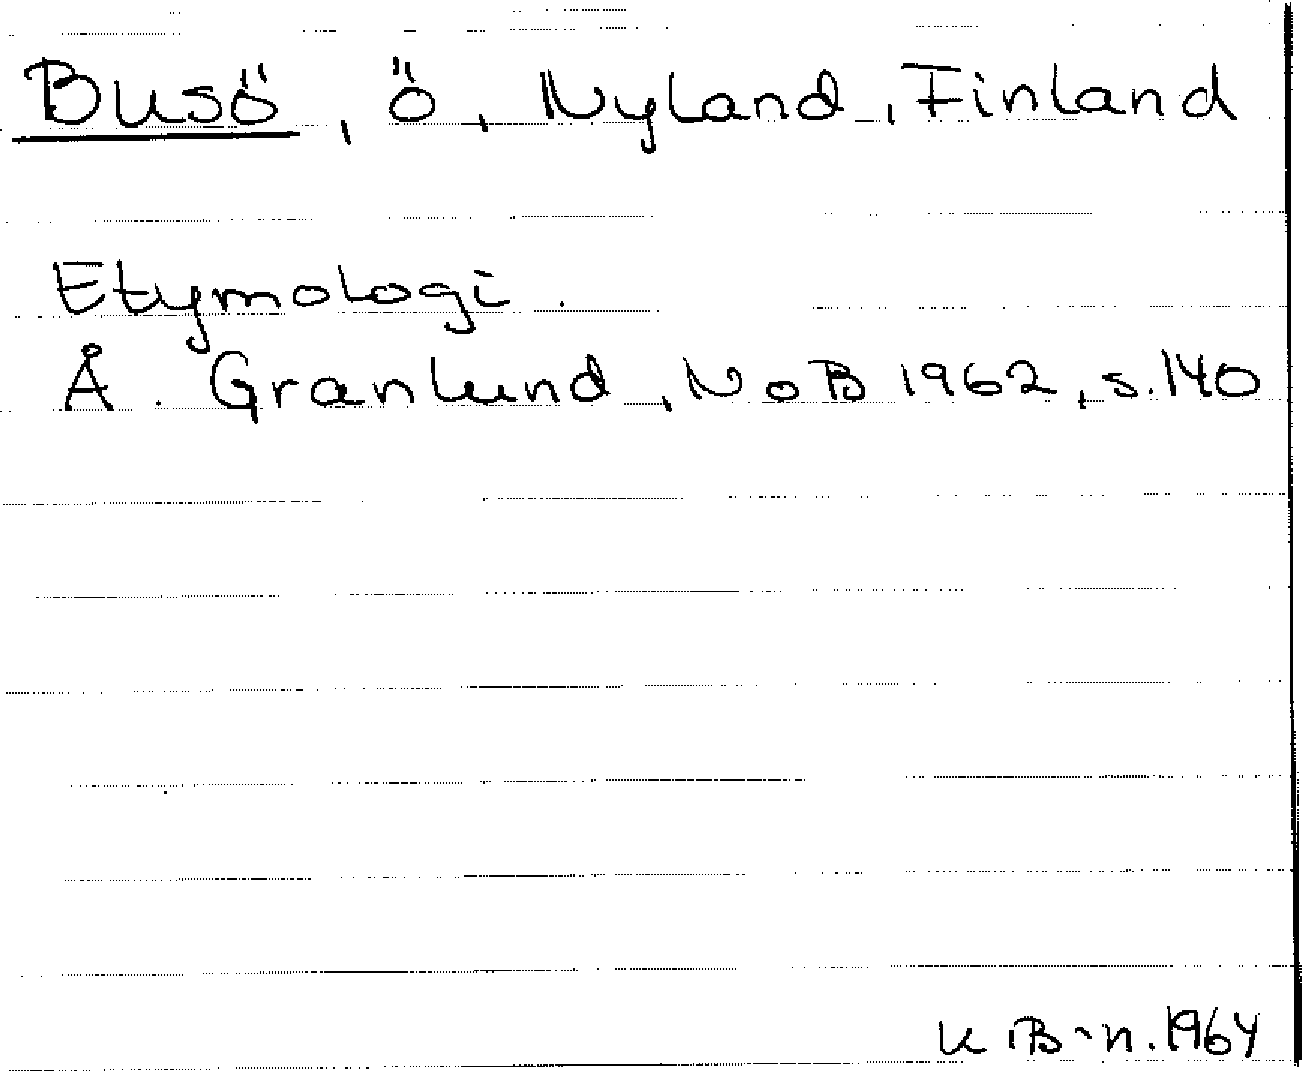 Busö, ö, Nyland, Finland
Etymologi.
Å. Granlund, NoB 1962, s.140
K.B-n.1964